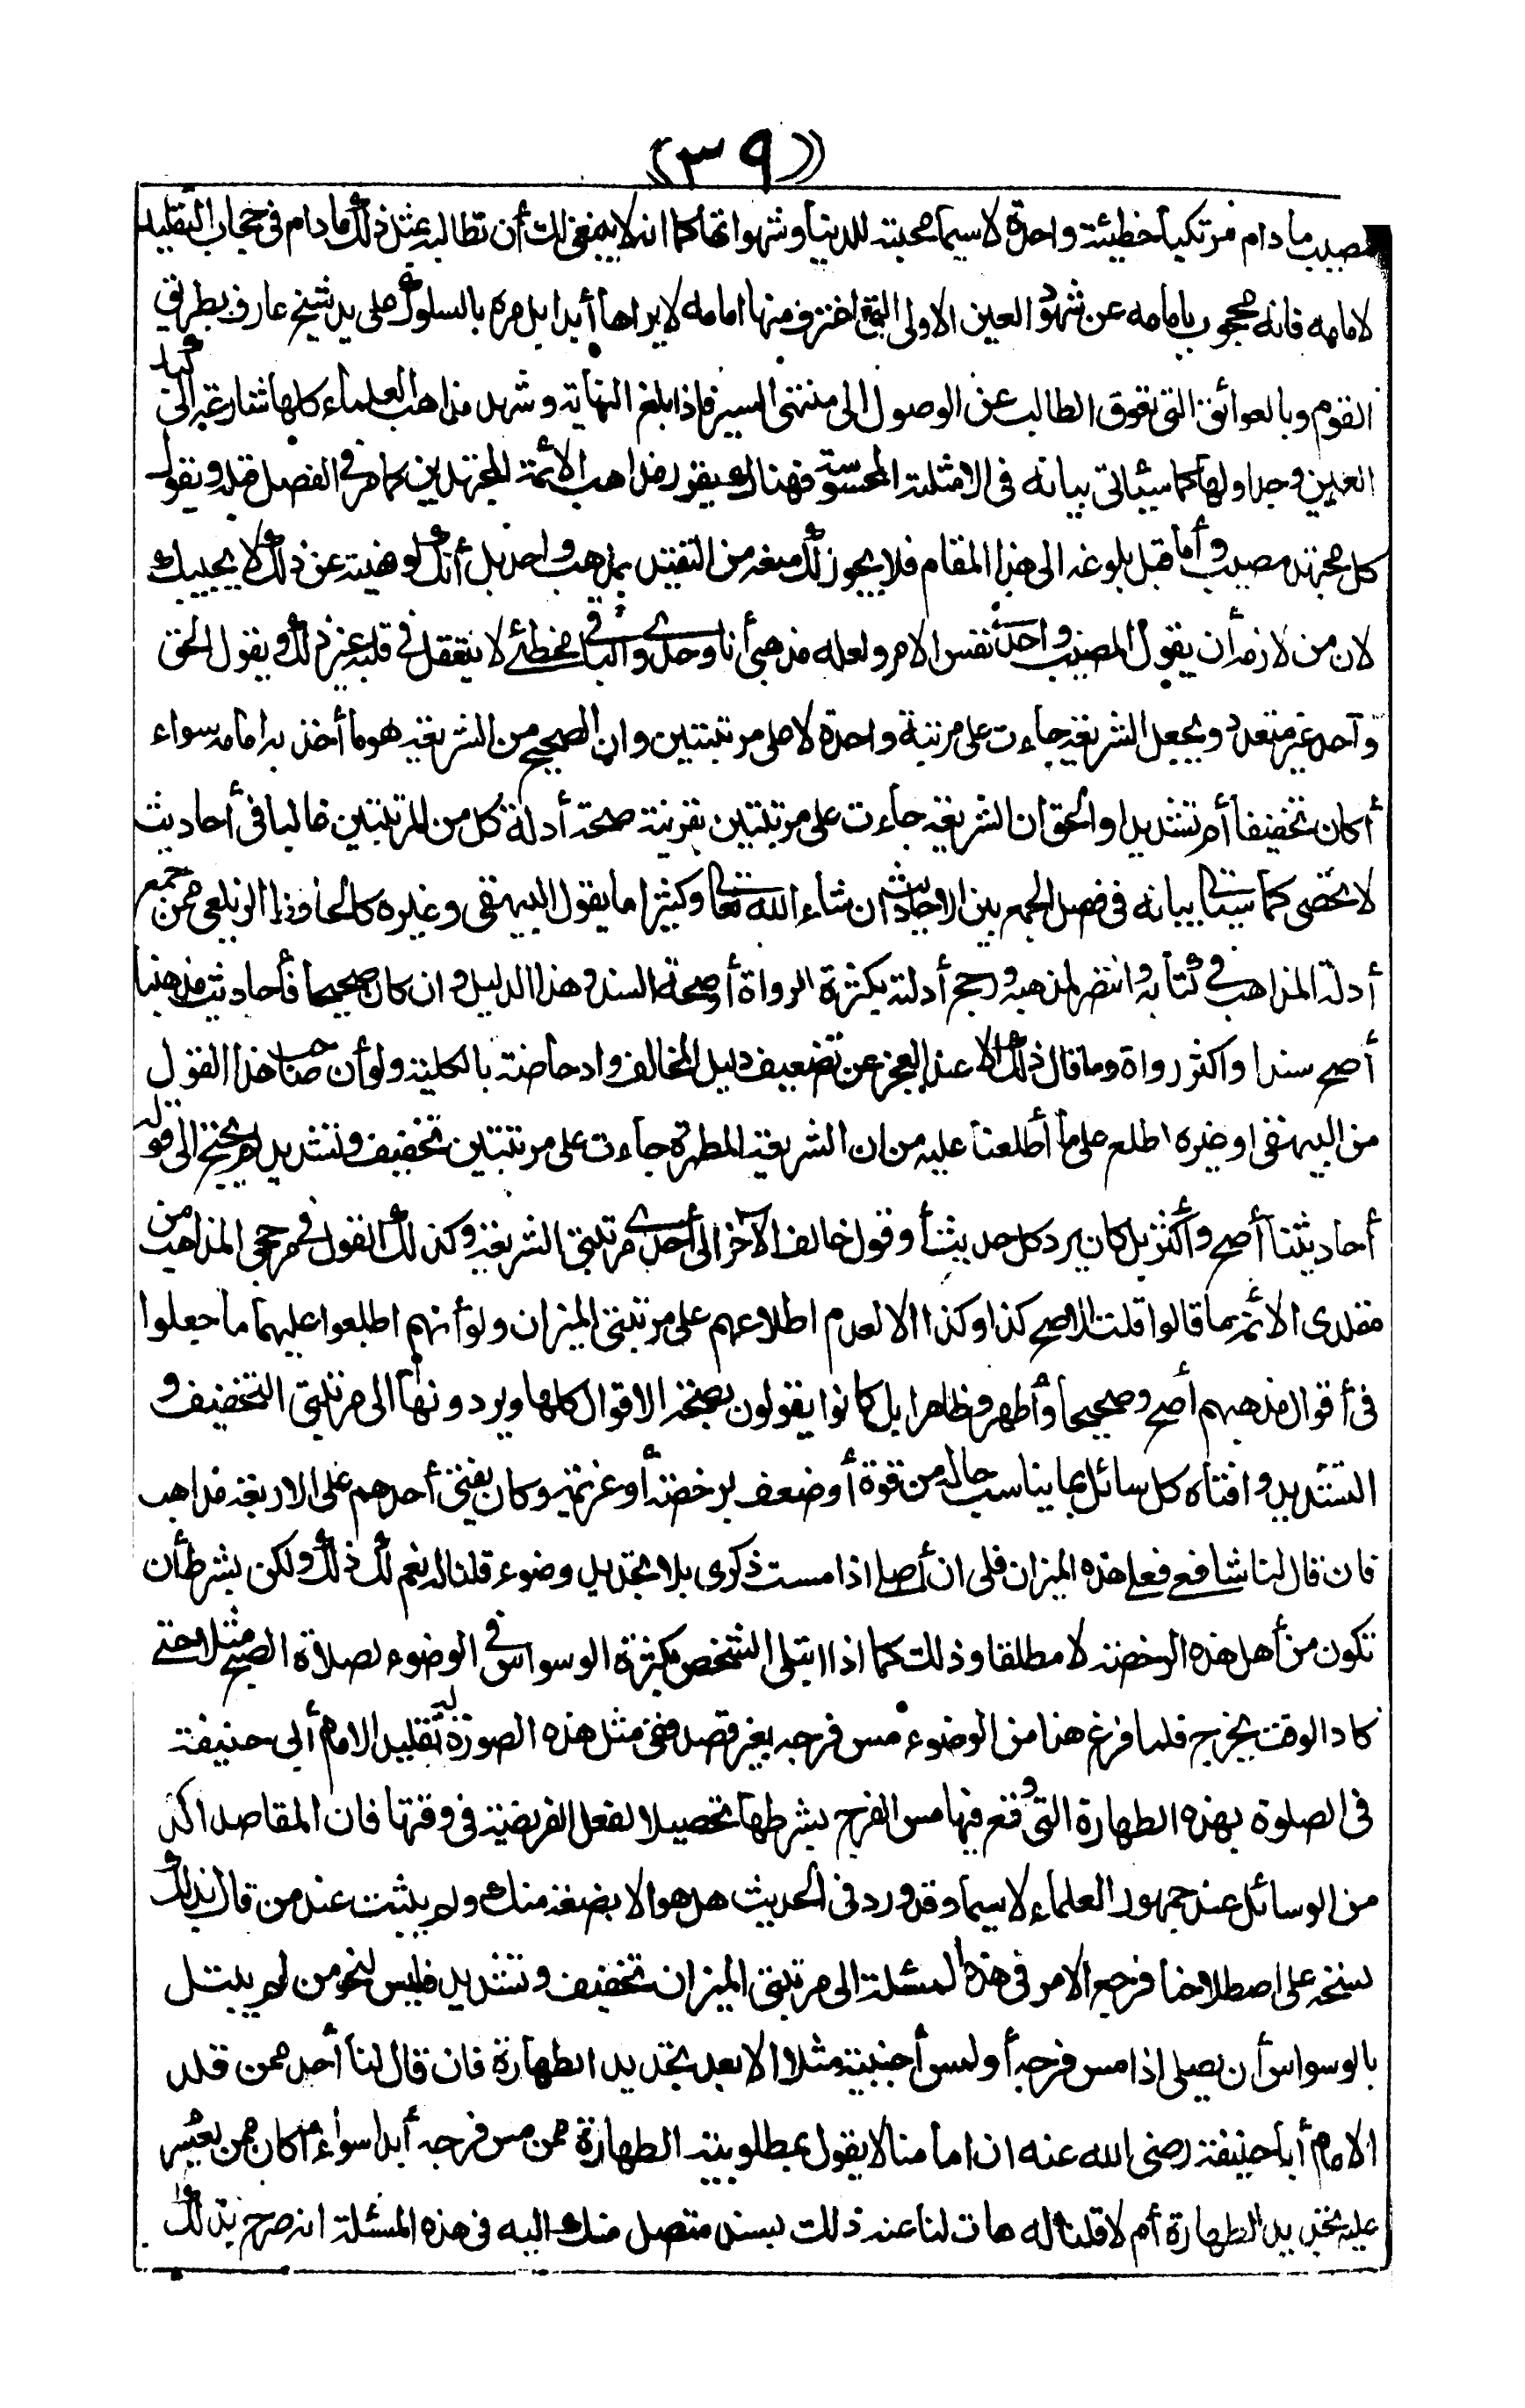 ((٣٩))
مصيب ما دام مرتكبا خطيئة واحدة لا سيما محبته للدنيا وشهواتها كما انه لا ينبغي لك أن تطالبه بمثل ذلك ما دام في حجاب التقليد
لامامه فانه محجوب بامامه عن شهود العين الاولى التى اغترف منها امامه لا يراها أبدا بل مره بالسلوك على يد شيخ عارف بطريق
القوم وبالعوائق التى تعوق الطالب عن الوصول الى منتهى السير فاذا بلغ النهاية وشهد مذاهب العلماء كلها شارعة الى
العين وجداولها كما سيأتى بيانه فى الامثلة المحسوسة فهناك يقرر مذاهب الأئمة المجتهدين كما مر فى الفصل قبله ويقول
كل مجتهد مصيب وأما قبل بلوغه الى هذا المقام فلا يجوز لك منعه من التقيد بمذهب واحد بل أنك لو نهيته عن ذلك لا يجيبك
لان من لازمه أن يقول المصيب واحد فى نفس الامر ولعله مذهبى أنا وحدى والباقى مخطئ لا يتعقل فى قلبه غير ذلك ويقول الحق
واحد غير متعدد ويجعل الشريعة جاءت على مرتبة واحدة لا على مرتبتين وان الصحيح من الشريعة هو ما أخذ به امامه سواء
أكان تخفيفا أم تشديدا والحق ان الشريعة جاءت على مرتبتين بقرينة صحة أدلة كل من المرتبتين غالبا فى أحاديث
لا تحصى كما سيأتى بيانه فى فصل الجمع بين الاحاديث ان شاء الله تعالى وكثيرا ما يقول البيهقى وغيره كالحافظ الزيلعى ممن جمع
أدلة المذاهب فى كتابه وانتصر لمذهبه ورجح أدلته بكثرة الرواة أو صحة السند وهذا الدليل وان كان صحيحا فأحاديث مذهبنا
أصح سندا واكثر رواة وما قال ذلك الا عند العجز عن تضعيف دليل المخالف وادحاضه بالكلية ولو أن صاحب هذا القول
من البيهقى او غيره اطلع على ما أطلعنا عليه من ان الشريعة المطهرة جاءت على مرتبتين تخفيف وتشديد لم يحتج الى قوله
أحاديثنا أصح وأكثر بل كان يرد كل حديث أو قول خالف الآخر الى أحدى مرتبتى الشريعة وكذلك القول فى مرجحى المذاهب من
مقلدى الأئمة ما قالوا قلت الاصح كذا وكذا الا لعدم اطلاعهم على مرتبتى الميزان ولو أنهم اطلعوا عليهما ما جعلوا
فى أقوال مذهبهم أصح وصحيحا وأظهر وظاهرا بل كانوا يقولون بصحة الاقوال كلها ويردونها الى مرتبتى التخفيف و
التشديد وافتاه كل سائل بما يناسب حاله من قوة أو ضعف برخصة أو عزيمة وكان يفتى أحدهم على الاربعة مذاهب
فان قال لنا شافعى فعلى هذه الميزان فلى ان أصلى اذا مست ذكرى بلا تجديد وضوء قلنا له نعم لك ذلك ولكن بشرط أن
تكون من أهل هذه الرخصة لا مطلقا وذلك كما اذا ابتلى الشخص بكثرة الوسواس فى الوضوء لصلاة الصبح مثلا حتى
كاد الوقت يخرج فلما فرغ هذا من الوضوء مس فرجه بغير قصد ففى مثل هذه الصورة له تقليد الامام أبى حنيفة
فى الصلوة بهذه الطهارة التى وقع فيها مس الفرج بشرطها تحصيلا لفعل الفريضة فى وقتها فان المقاصد اكد
من الوسائل عند جمهور العلماء لا سيما وقد ورد فى الحديث هل هو الا بضعة منك ولم يثبت عند من قال بذلك
نسخه على اصطلاحنا فرجع الامر فى هذه المسئلة الى مرتبتى الميزان تخفيف وتشديد فليس لنحو من لم يبتل
بالوسواس أن يصلى اذا مس فرجه أو لمس أجنبية مثلا الا بعد تجديد الطهارة فان قال لنا أحد ممن قلد
الامام أبا حنيفة رضى الله عنه ان امامنا لا يقول بمطلوبية الطهارة ممن مس فرجه أبدا سواء أكان ممن يعسر
عليه تجديد الطهارة أم لا قلنا له هات لنا عنه ذلك بسند متصل منك اليه فى هذه المسئلة انه صرح بذلك